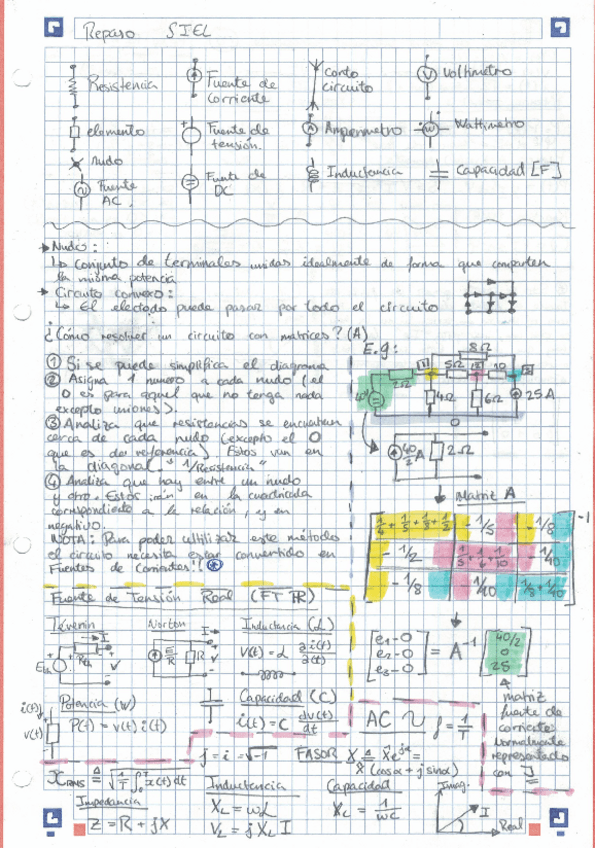 Repaso SIEL
Resistencia
Fuente de corriente
corto circuito
Voltímetro
elemento
Fuente de tensión.
Amperímetro
Wattimetro
nudo
Fuente AC.
Fuente de DC
Inductancia
Capacidad [F]
→ Nudo:
↳ conjunto de terminales unidas idealmente de forma que comparten
la misma potencia
→ Circuito convexo:
↳ El electodo puede pasar por todo el circuito
¿Cómo resolver un circuito con matrices? (A)
① Si se puede simplifica el diagrama
② Asigna 1 numero a cada nudo (el
0 es para aquel que no tenga nada
excepto uniones).
③ Analiza que resistencias se encuentran
cerca de cada nudo (excepto el 0
que es de referencia). Estos van en
la diagonal. "1/Resistencia"
④ Analiza que hay entre un nudo
y otro. Estos irán en la cuadricada
correspondiente a la relación, y en
negativo.
NOTA: Para poder utilizar este método
el circuito necesita estar convertido en
Fuentes de Corriente!!
E.g:
8Ω
2Ω
5Ω
10
4Ω
6Ω
25A
0
40/2 A
2Ω
Matriz A
-1/5
-1/8
-1/2
1/5 + 1/6 + 1/10
-1/40
-1/8
1/40
-1
[e1-0
e2-0
e3-0] = A⁻¹ [40/2
0
25]
matriz
fuente de
corriente
normalmente
representado
con J
Fuente de Tensión Real (FTR)
Tévenin
Norton
Inductancia (L)
V(t) = L ∂i(t)/∂(t)
Potencia (W)
P(t) = v(t) i(t)
i(t)
v(t)
Capacidad (C)
i(t) = C dv(t)/dt
AC
f = 1/T
j = i = √-1
FASOR
X̂ (cosα + j sinα)
Inductancia
X_L = ωL
V_L = j X_L I
Capacidad
X_C = 1/ωC
Impedancia
Z = R + jX
Imag.
I
Real